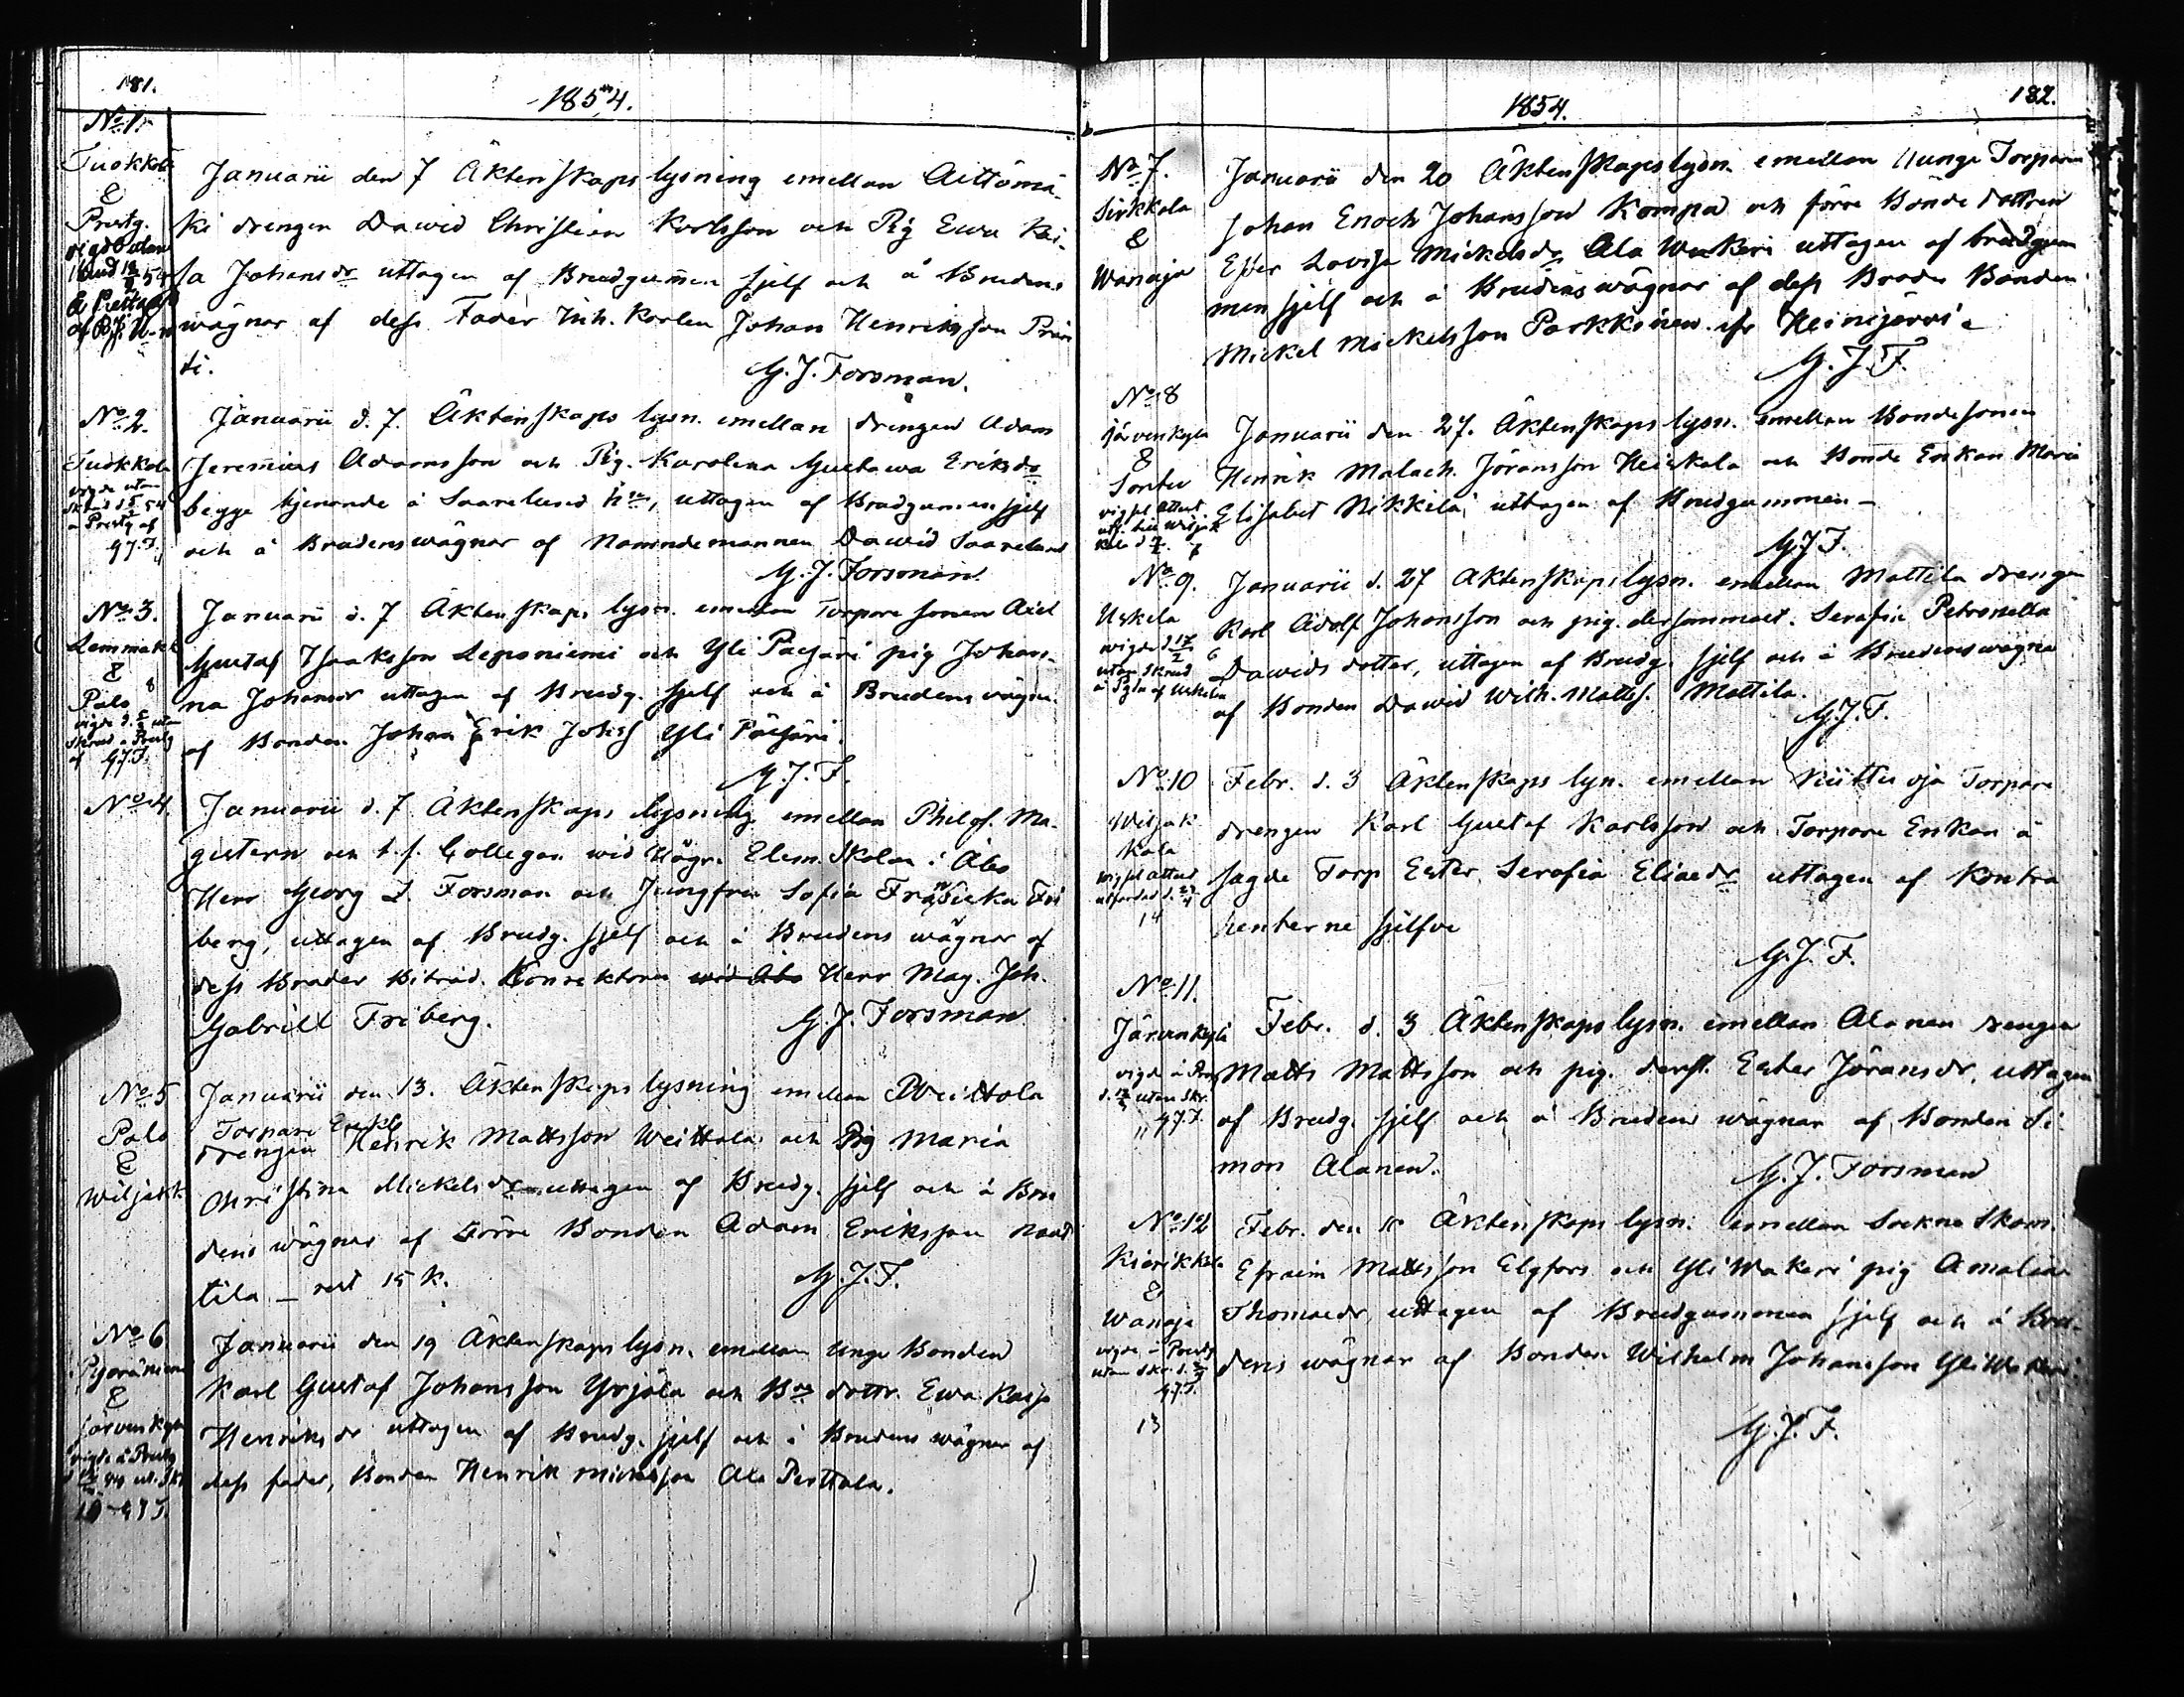 181.
1854.
No 1.
Tuokkola
&
Prestg.
Januarii den 7 Äktenskaps lysning emellan Aittomä-
ki drengen Dawid Christian Karlsson och Pig Ewa Kai-
sa Johansdr uttagen af Brudgummen sjelf och å Brudens
wägnar af dess Fader Inh. Karlen Johan Henriksson Prii
ti.
G. J. Forsman.
No 2.
Tuokkola
vigde utan
Skrud d 5/2 54
a Prestg af
G.J.F.
Januarii d. 7. Äktenskaps lysn. emellan drengen Adam
Jeremias Adamsson och Pig. Karolina Gustawa Eriksdr
begge tjenande å Saarelund, uttagen af Brudgummen sjelf
och å Brudens wägnar af Nämndemannen Dawid Saarelund
G. J. Forsman
No 3.
&
Palo
8
Januarii d. 7 Äktenskaps lysn. emellan Torpare sonen Axel
Gustaf Isaksson Leponiemi och Yli Päijäri pig Johan-
na Johansdr uttagen af Brudg. sjelf och å Brudens wägn.
af Bonden Johan Erik Johss Yli Päijäri.
G. J. F.
No 4.
Januarii d. 7 Äktenskaps lysning emellan Philos. Ma-
gistern och t.f. Collegan wid Högr. Elem. Skolan i Åbo
Herr Georg Z. Forsman och Jungfru Sofia Fredrika Fri
berg, uttagen af Brudg. sjelf och å Brudens wägnar af
dess Broder Biträd. Konrektorn wid Åbo Herr Mag. Joh.
Gabriel Friberg.
G. J. Forsman
No 5
Palo
&
Wiljakk
Januarii den 13. Äktenskaps lysning emellan Weittola
Torpare Enkl.
drengen Henrik Mattsson Weittola och Pig Maria
Christina Mickelsdr uttagen af Brudg. sjelf och å Bru
dens wägnar af Förre Bonden Adam Eriksson
tila _ rest 15 k.
G. J. F.
No 6
&
Järvenkylä
Januarii den 19 Äktenskaps lysn. emellan Unge Bonden
Karl Gustaf Johansson Yrjölä och Bde dottr. Ewa Kaisa
Henriksdr uttagen af Brudg. sjelf och å Brudens wägnar af
dess fader, Bonden Henrik Mickelsson Ala Perttola.
182.
1854.
No 7.
Sirkkala
&
Wanaja
Januarii den 20 Äktenskapslysn. emellan Unge Torparen
Johan Enoch Johansson Kompa och förre Bonde dottren
Ester Lovisa Mickelsdr Ala Wakeri uttagen af brudgum
men sjelf och å Brudens wägnar af dess Broder Bonden
Mickel Mickelsson Parkkinen ifr Heinijärvi
G. J. F.
No 8
Järvenkylä
&
Sontu
Januarii den 27. Äktenskaps lysn. emellan Bondesonen
Henrik Malach. Jöransson Heikkola och Bonde Enkan Maria
Elisabet Nikkilä uttagen af Brudgummen _
7
G. J. F.
No 9.
Uskela
vigde d 17/2
utan Skrud
6
Januarii d. 27 Äktenskapslysn. emellan Mattila drengen
Karl Adolf Johansson och pig. dersammast. Serafia Petronella
Dawids dotter, uttagen af Brudg. sjelf och å Brudens wägna
af Bonden Dawid Wilh. Mattss. Mattila.
G. J. F.
No 10
Wiljak
kala
vigsel attest
14
Febr. d. 3 Äktenskaps lyn. emellan Niittu oja Torpare
drengen Karl Gustaf Karlsson och Torpare Enkan å
sagde Torp Ester Serafia Eliaedr uttagen af Kontra
henterne sjelfve
G. J. F.
No 11.
Järvenkylä
utan Skr.
11 G.J.F.
Febr. d. 3 Äktenskaps lysn. emellan Alanen drengen
Matts Mattsson och pig. derst. Ester Jöransdr, uttagen
af Brudg. sjelf och å Brudens wägnar af Bonden Si
mon Alanen.
G. J. Forsman
No 12
Kiärikkala
&
Wanaja
13
Febr. den 10 Äktenskaps lysn. emellan Sockne Skom.
Efraim Mattsson Elgfors och Yli Wakeri pig Amalia
Thomaedr, uttagen af Brudgummen sjelf och å Bru-
dens wägnar af Bonden Wilhelm Johansson Yli Wakeri
G. J. F.